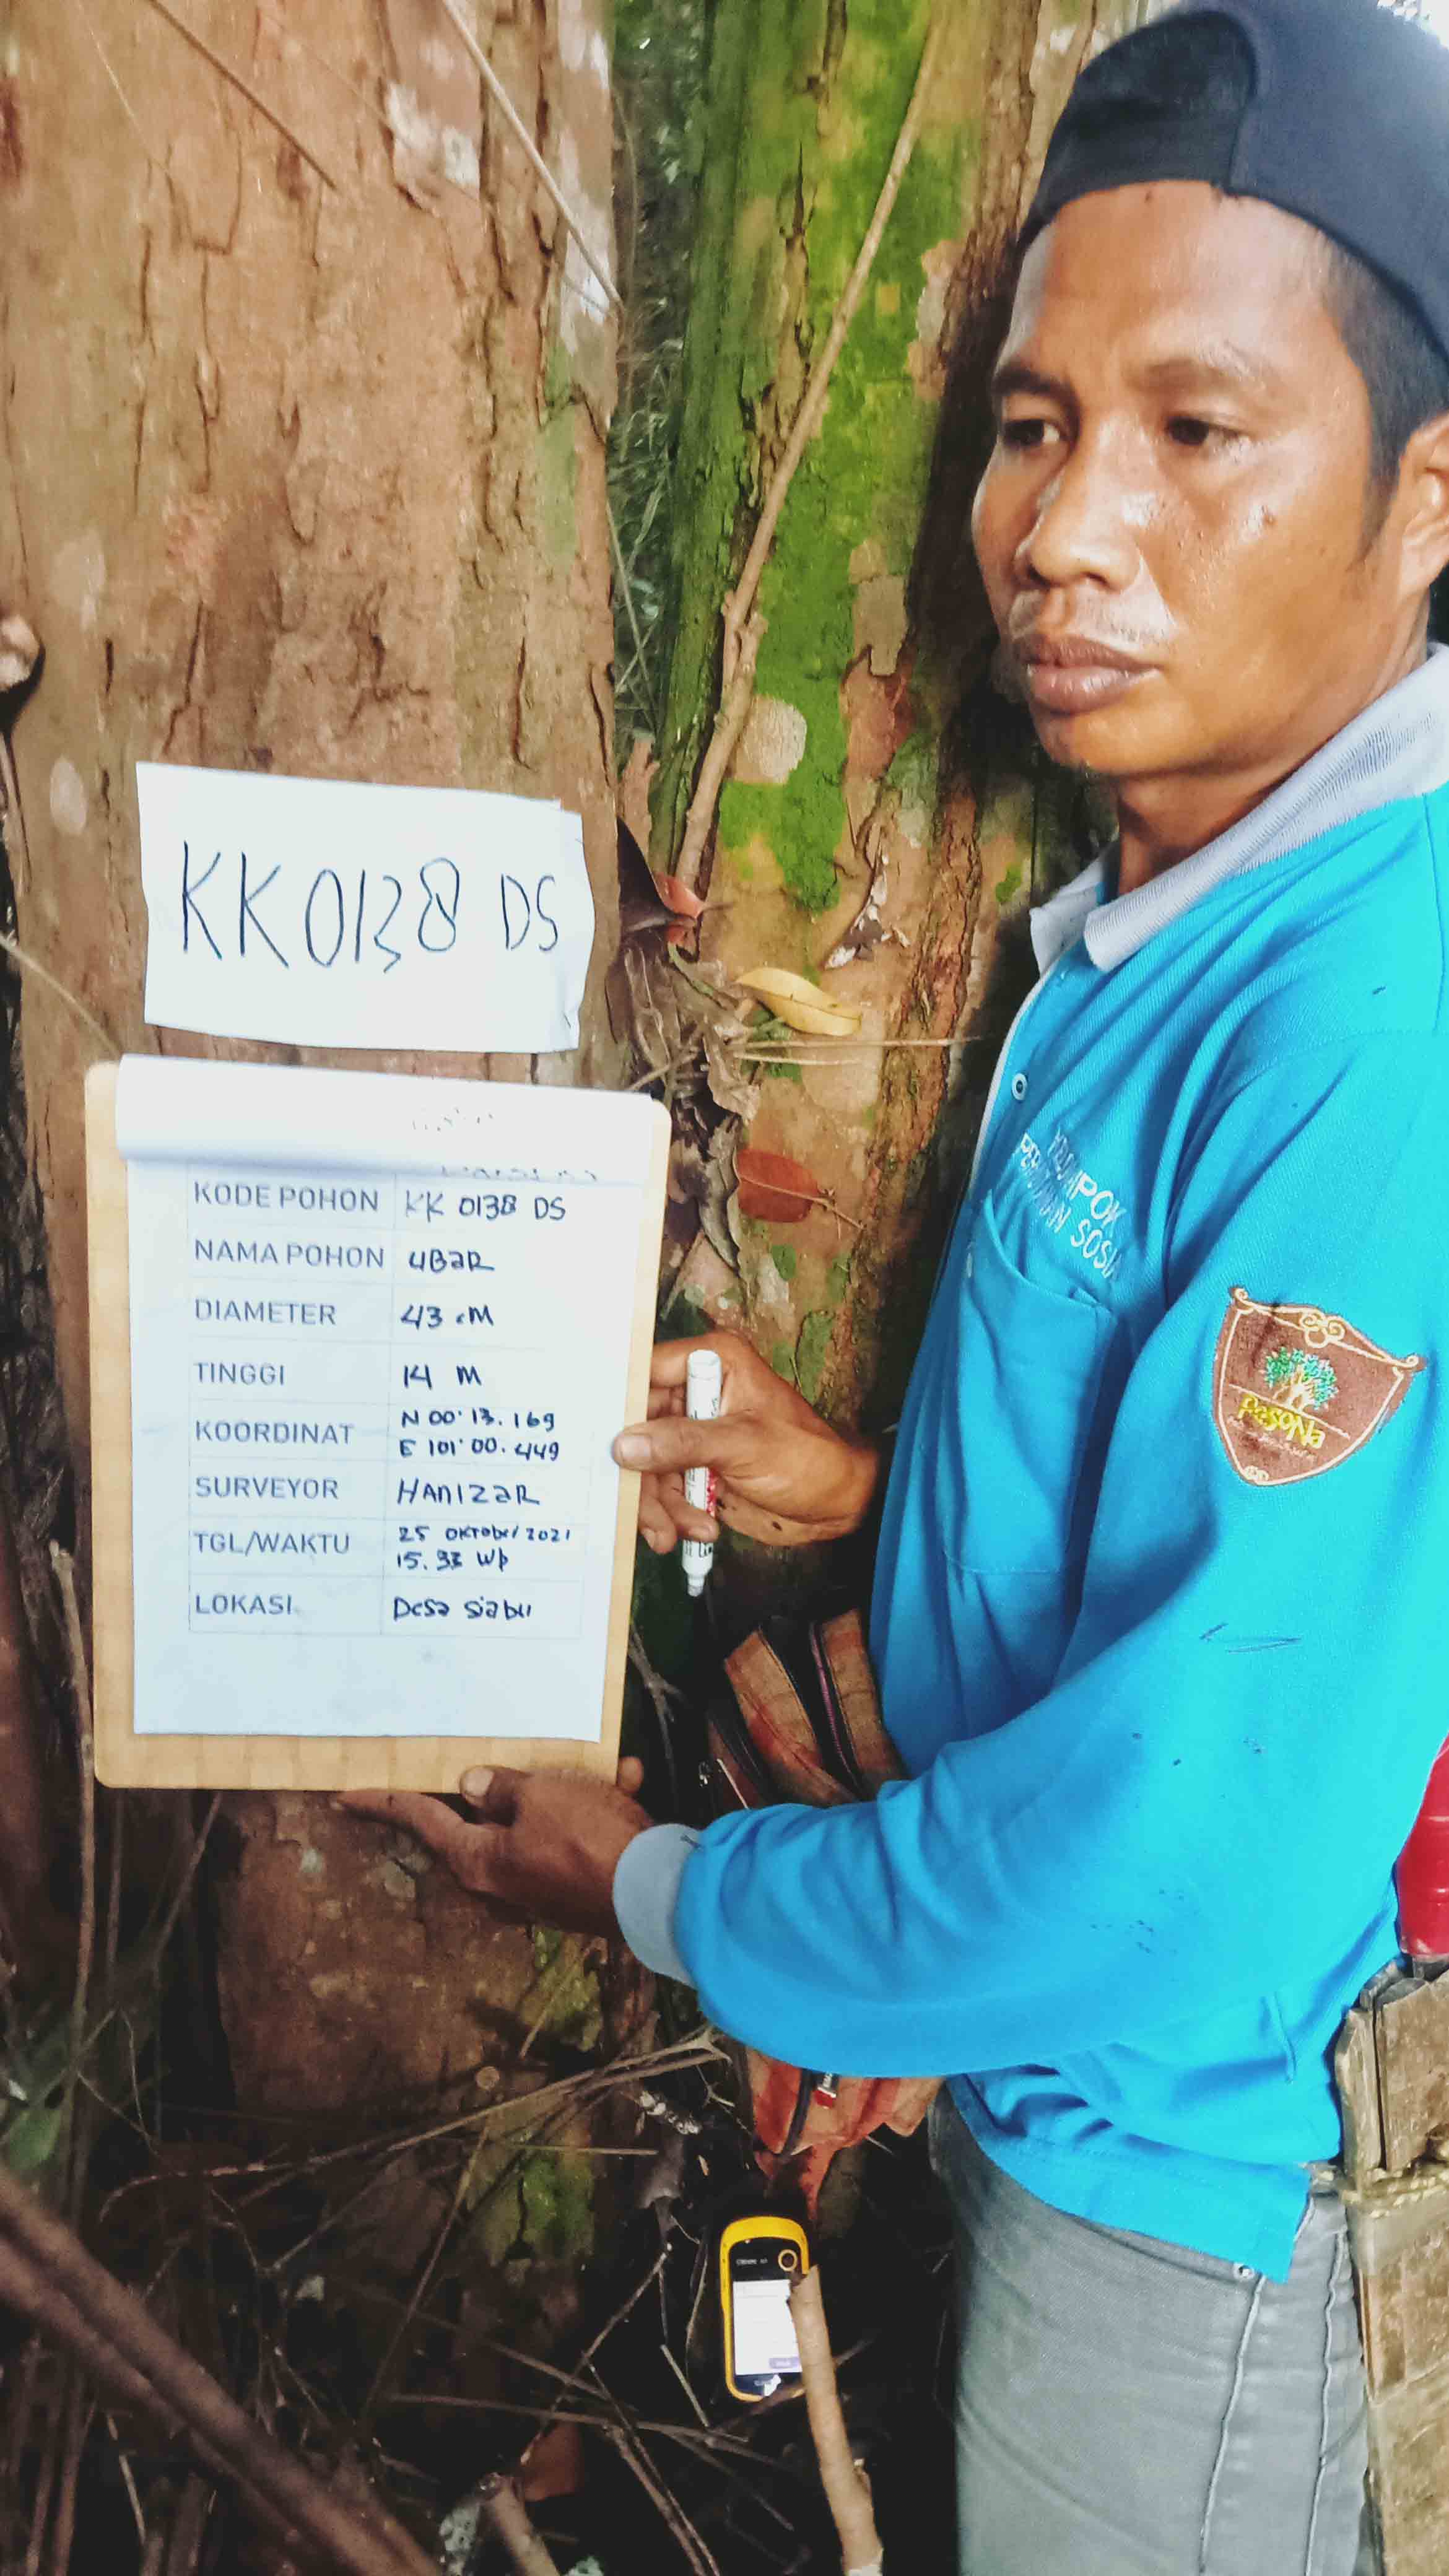 KK0138 DS
KODE POHON KK 0138 DS
NAMA POHON UBAR
DIAMETER 43 cM
TINGGI 14 M
KOORDINAT N 00° 13. 169
E 101° 00. 449
SURVEYOR HANIZAR
TGL/WAKTU 25 OKTober 2021
15. 33 Wb
LOKASI Desa siabu
KELOMPOK
PERHUTANAN SOSIAL
PaSoNa